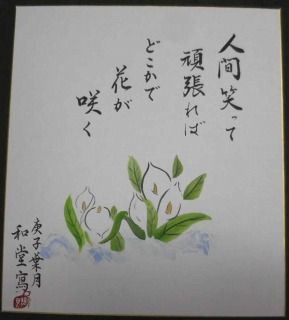 人間笑って
頑張れば
どこかで
花が
咲く
庚子葉月
和堂寫